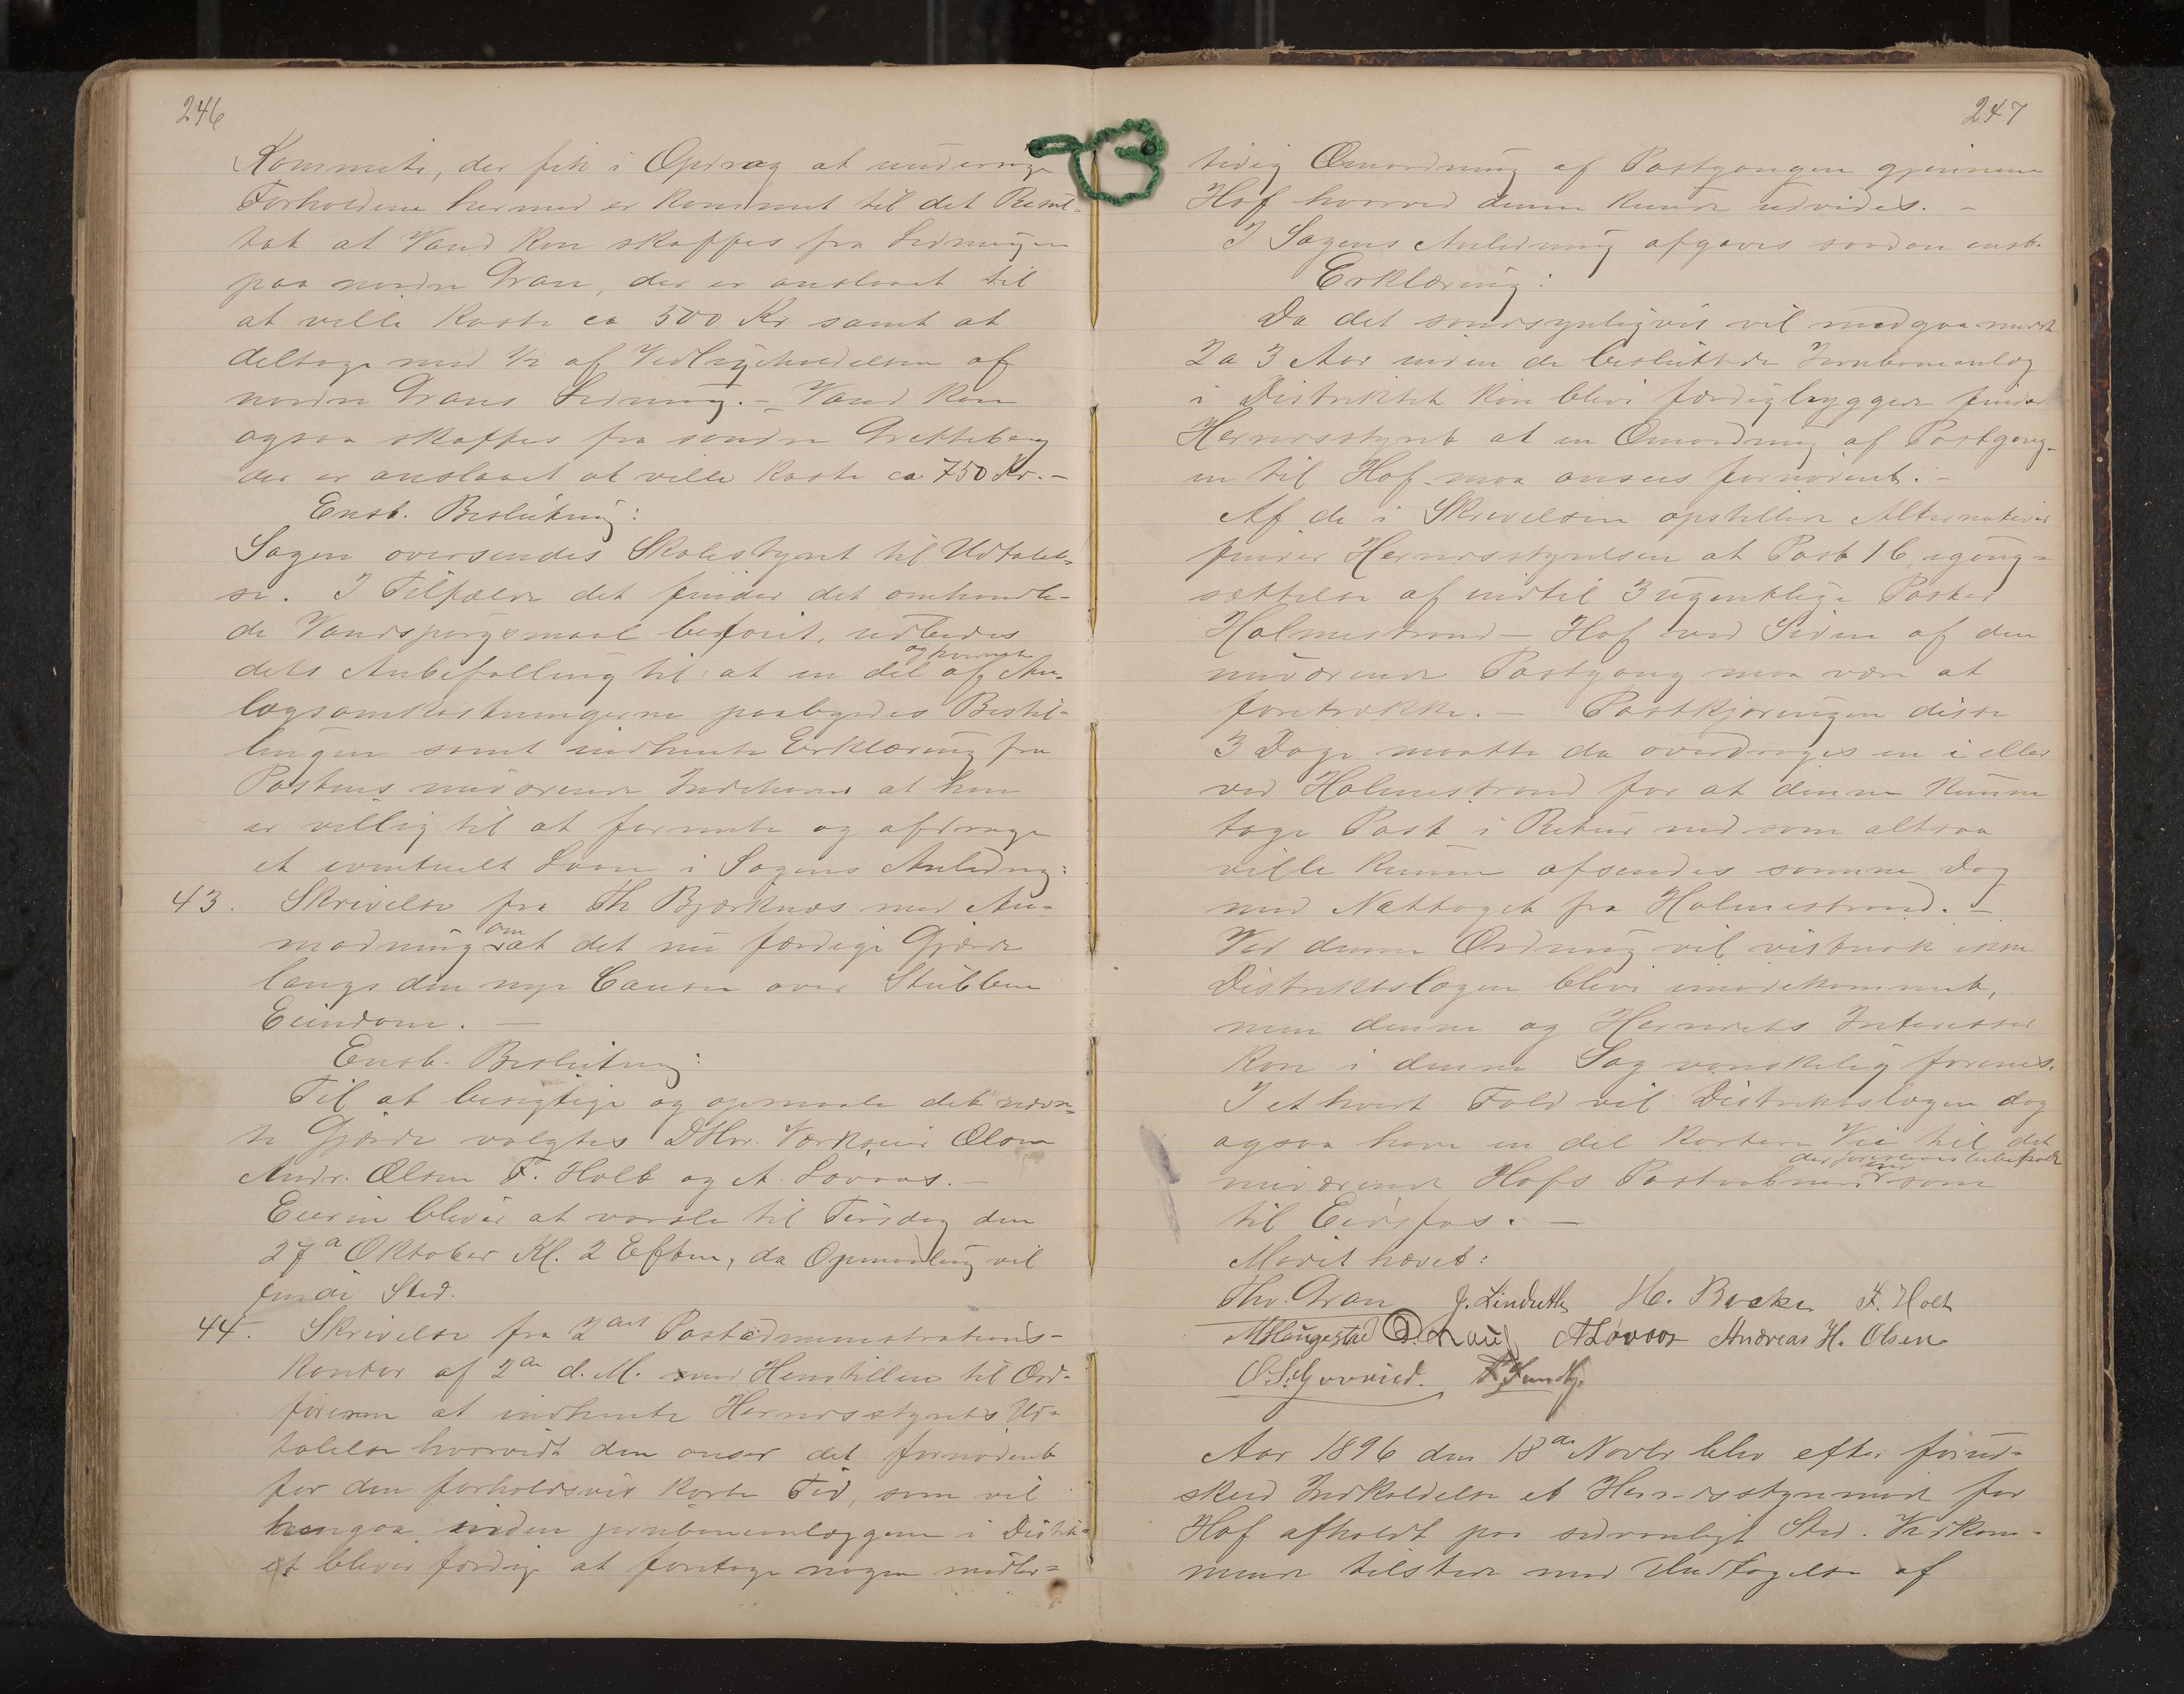 246
Kommite, der fik i Opdrag at undersøge
Forholdene hermed er kommet til det Resul-
tat at Vand kan skaffes fra Ledningen
paa nordre Gran, der er anslaaet til
at ville koste ca 500 Kr samt at
deltage med 1/2 af Vedligeholdelsen af
nordre Grans Ledning. – Vand kan
ogsaa skaffes fra søndre Gretteberg
der er anslaaet at ville koste ca 750 Kr. –
Enst. Beslutning:
Sagen oversendes Skolestyret til Udtalel-
se. I Tilfælde det finder det omhandle-
de Vandspørgsmaal
dets Anbefalling til at en del af An-
lægsomkostningerne Bestil-
lingen samt indhente Erklæring fra
Postens nuværende Indehaver at han
er villig til at forrente og afdrage
et eventuelt Laan i Sagens Anledng:
43. Skrivelse fra Th Bjerknæs med An-
modning om at det nu færdige Gjærde
langs den nye over Stubben
Eiendom. –
Enst. Beslutning:
Til at besigtige og opmaale det nævn-
te Gjærde valgtes DHrr. Værkseier Olsen
Andr. Olsen F. Holt og A. Løvaas. –
Eieren bliver at varsle til Tirsdag den
27de Oktober Kl. 2 Eftm, da Opmaaling vil
finde Sted.
44. Skrivelse fra 2det Postadministrations-
kontor af 2de d. M. med Henstillen til Ord-
føreren at indhente Herredsstyrets Ud-
talelse hvorvidt den anser det fornødent
for den forholdsvis korte Tid, som vil
hengaa inden jernbaneanlæggene i Distrik-
et bliver færdige at foretage nogen midler-
247
tidig Omordning af Postgangen gjennem
Hof hvorved denne kunde udvides. –
I Sagens Anledning afgaves saadan enst.
Erklæring:
Da det sandsynligvis vil medgaa mindst
2 a 3 Aar inden de besluttede Jernbaneanlæg
i Distriktet kan blive færdigbyggede finder
Herredsstyret at en Omordning af Postgang-
en til Hof maa ansees fornødent. –
Af de i Skrivelsen opstillede Alternativer
finder Herredsstyrelsen at Post 1 b, igang-
sættelse af indtil 3 ugentlige Poster
Holmestrand – Hof ved Siden af den
nuværende Postgang maa være at
foretrække. – Postkjøringen disse
3 Dage maatte da overdrages en i eller
ved Holmestrand for at denne kunne
tage Post i Retur ned som altsaa
ville kunne afsendes samme Dag
med Nattoget fra Holmestrand. –
Ved denne Ordning vil vistnok ikke
Distriktslægen blive imødekommet,
men denne og Herredets Interesser
kan i denne Sag vanskelig forenes.
I ethvert Fald vil Distriktslægen dog
ogsaa have en del kortere Vei til det
nuværende Hofs Postaabneri som
til Eidsfos. –
Mødet hævet:
Thv. Gran J. Lindseth H. Backe F. Holt
M Haugestad A Løvaas Andreas H. Olsen
Aar 1896 den 18de Novbr blev efter forud-
skeed Indkaldelse et Herredsstyremøde for
Hof afholdt paa sedvanligt Sted. Vedkom-
mende tilstede med Undtagelse af